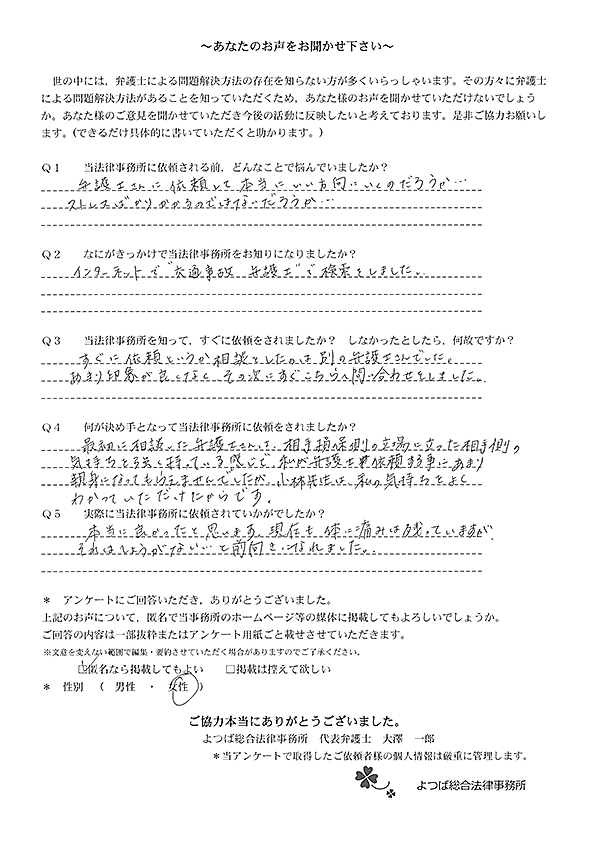 ～あなたのお声をお聞かせ下さい～
世の中には、弁護士による問題解決方法の存在を知らない方が多くいらっしゃいます。その方々に弁護士
による問題解決方法があることを知っていただくため、あなた様のお声を聞かせていただけないでしょう
か。あなた様のご意見を聞かせていただき今後の活動に反映したいと考えております。是非ご協力お願いし
ます。(できるだけ具体的に書いていただくと助かります。)
Q１　当法律事務所に依頼される前、どんなことで悩んでいましたか？
弁護士さんに依頼して本当にいい方向にいくのだろうか…
ストレスばかりかかるのではないだろうか…
Q２　なにがきっかけで当法律事務所をお知りになりましたか？
インターネットで"交通事故 弁護士"で検索をしました。
Q３　当法律事務所を知って、すぐに依頼をされましたか？　しなかったとしたら、何故ですか？
すぐに依頼というか相談をしたのは別の弁護士さんでした。
あまり印象が良くなく、その次にすぐこちらへ問い合わせをしました。
Q４　何が決め手となって当法律事務所に依頼をされましたか？
最初に相談した弁護士さんは、相手損保側の立場に立った相手側の
気持ちを強く持っている感じで、私が弁護士に依頼する事にあまり
親身になってもらえませんでしたが、小林先生は、私の気持ちをよく
わかっていただけたからです。
Q５　実際に当法律事務所に依頼されていかがでしたか？
本当に良かったと思います。現在も体に痛みは残っていますが、
それはしょうがない…と前向きになれました。
＊　アンケートにご回答いただき、ありがとうございました。
上記のお声について、匿名で当事務所のホームページ等の媒体に掲載してもよろしいでしょうか。
ご回答の内容は一部抜粋またはアンケート用紙ごと載せさせていただきます。
※文意を変えない範囲で編集・要約させていただく場合がありますのでご了承ください。
☑匿名なら掲載してもよい　　□掲載は控えて欲しい
＊　性別　（　男性　・　女性　）
ご協力本当にありがとうございました。
よつば総合法律事務所　代表弁護士　大澤　一郎
＊当アンケートで取得したご依頼者様の個人情報は厳重に管理します。
よつば総合法律事務所